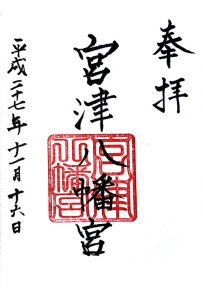 奉拝
宮津八幡宮
宮津八幡宮
平成二十七年十一月十六日